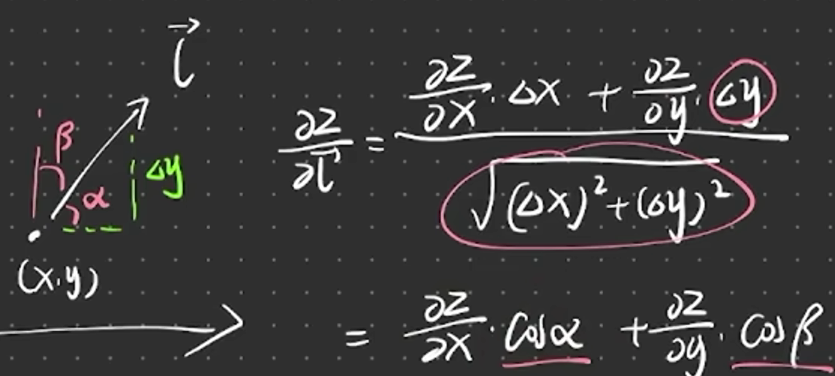 l⃗
β
α
Δy
(x,y)
∂z/∂l⃗ = (∂z/∂x · Δx + ∂z/∂y · Δy) / √((Δx)² + (Δy)²)
= ∂z/∂x · cosα + ∂z/∂y · cosβ